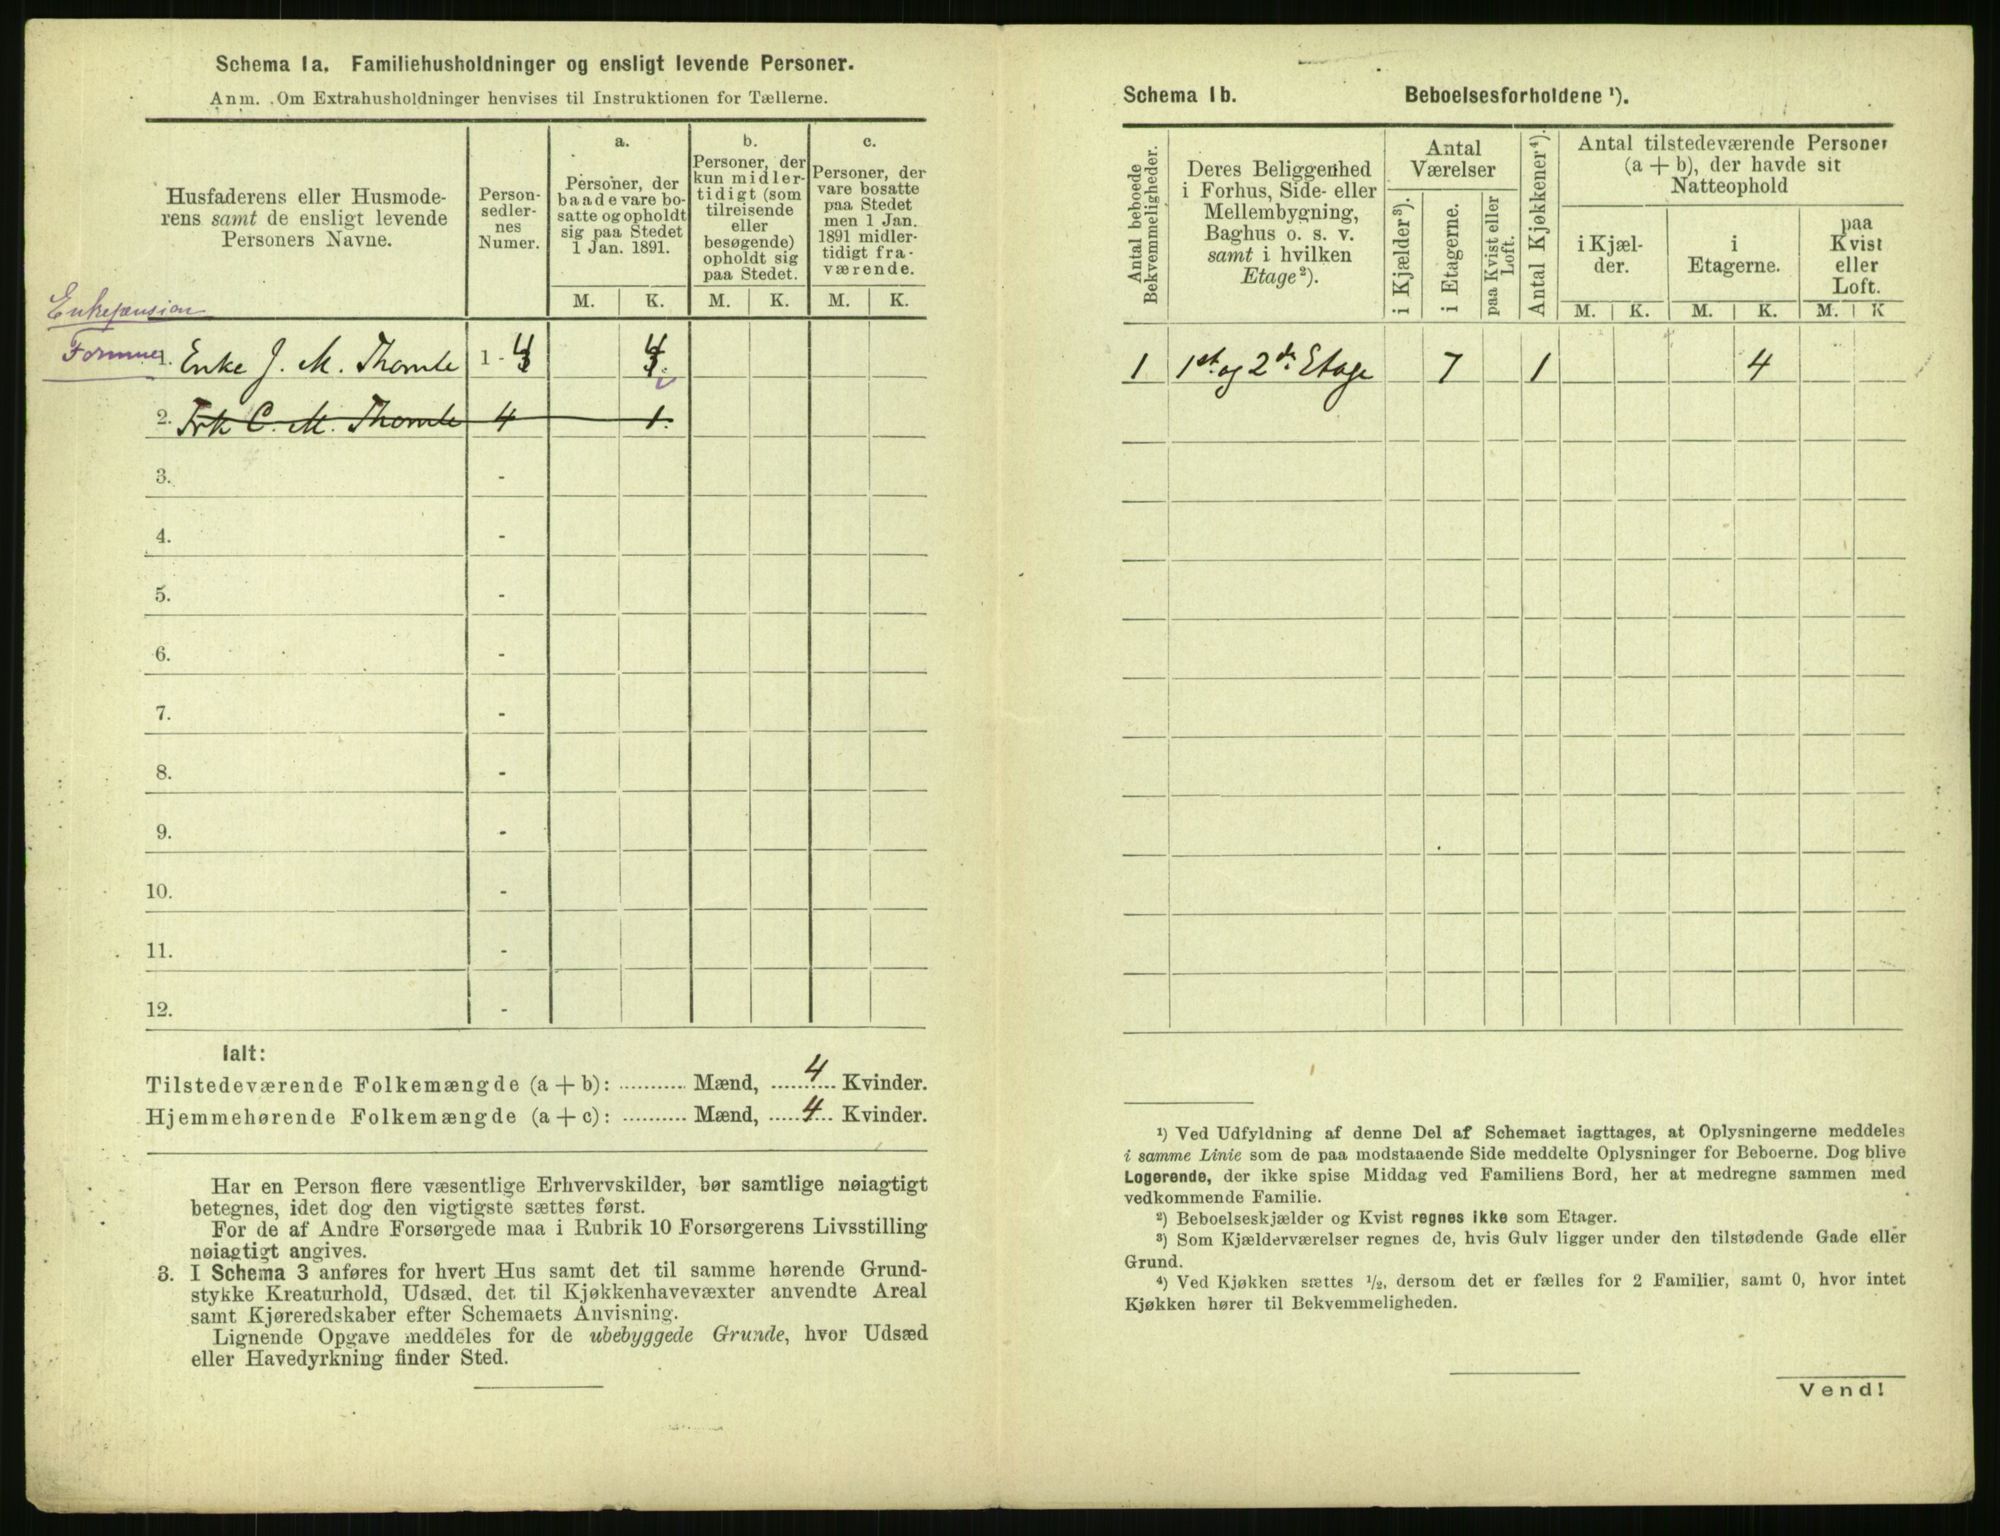 Schema 1a. Familiehusholdninger og ensligt levende Personer.
Anm. Om Extrahusholdninger henvises til Instruktionen for Tællerne.
Husfaderens eller Husmode-
rens samt de ensligt levende
Personers Navne.
Person-
sedler-
nes
Numer.
a.
Personer, der
baade vare bo-
satte og opholdt
sig paa Stedet
1 Jan. 1891.
b.
Personer, der
kun midler-
tidigt (som
tilreisende
eller
besøgende)
opholdt sig
paa Stedet.
c.
Personer, der
vare bosatte
paa Stedet
men 1 Jan.
1891 midler-
tidigt fra-
værende.
M. K. M. K. M. K.
Enkepension
Formue
1. Enke J. M. Thomle 1 - 4 4
2. Frk C. M. Thomle 4 1.
3. -
4. -
5. -
6. -
7. -
8. -
9. -
10. -
11. -
12. -
Ialt:
Tilstedeværende Folkemængde (a + b): .......... Mænd, 4 Kvinder.
Hjemmehørende Folkemængde (a + c): .......... Mænd, 4 Kvinder.
Har en Person flere væsentlige Erhvervskilder, bør samtlige nøiagtigt
betegnes, idet dog den vigtigste sættes først.
For de af Andre Forsørgede maa i Rubrik 10 Forsørgerens Livsstilling
nøiagtigt angives.
3. I Schema 3 anføres for hvert Hus samt det til samme hørende Grund-
stykke Kreaturhold, Udsæd, det til Kjøkkenhavevæxter anvendte Areal
samt Kjøreredskaber efter Schemaets Anvisning.
Lignende Opgave meddeles for de ubebyggede Grunde, hvor Udsæd
eller Havedyrkning finder Sted.
Schema 1b. Beboelsesforholdene ¹).
Antal beboede
Bekvemmeligheder.
Deres Beliggenhed
i Forhus, Side- eller
Mellembygning,
Baghus o. s. v.
samt i hvilken
Etage²).
Antal
Værelser
i Kjælder³).
i Etagerne.
paa Kvist eller
Loft.
Antal Kjøkkener⁴).
Antal tilstedeværende Personer
(a + b), der havde sit
Natteophold
i Kjæl-
der.
i
Etagerne.
paa
Kvist
eller
Loft.
M. K. M. K. M. K
1 1st. og 2de Etage 7 1 4
¹) Ved Udfyldning af denne Del af Schemaet iagttages, at Oplysningerne meddeles
i samme Linie som de paa modstaaende Side meddelte Oplysninger for Beboerne. Dog blive
Logerende, der ikke spise Middag ved Familiens Bord, her at medregne sammen med
vedkommende Familie.
²) Beboelseskjælder og Kvist regnes ikke som Etager.
³) Som Kjælderværelser regnes de, hvis Gulv ligger under den tilstødende Gade eller
Grund.
⁴) Ved Kjøkken sættes ½, dersom det er fælles for 2 Familier, samt 0, hvor intet
Kjøkken hører til Bekvemmeligheden.
Vend!